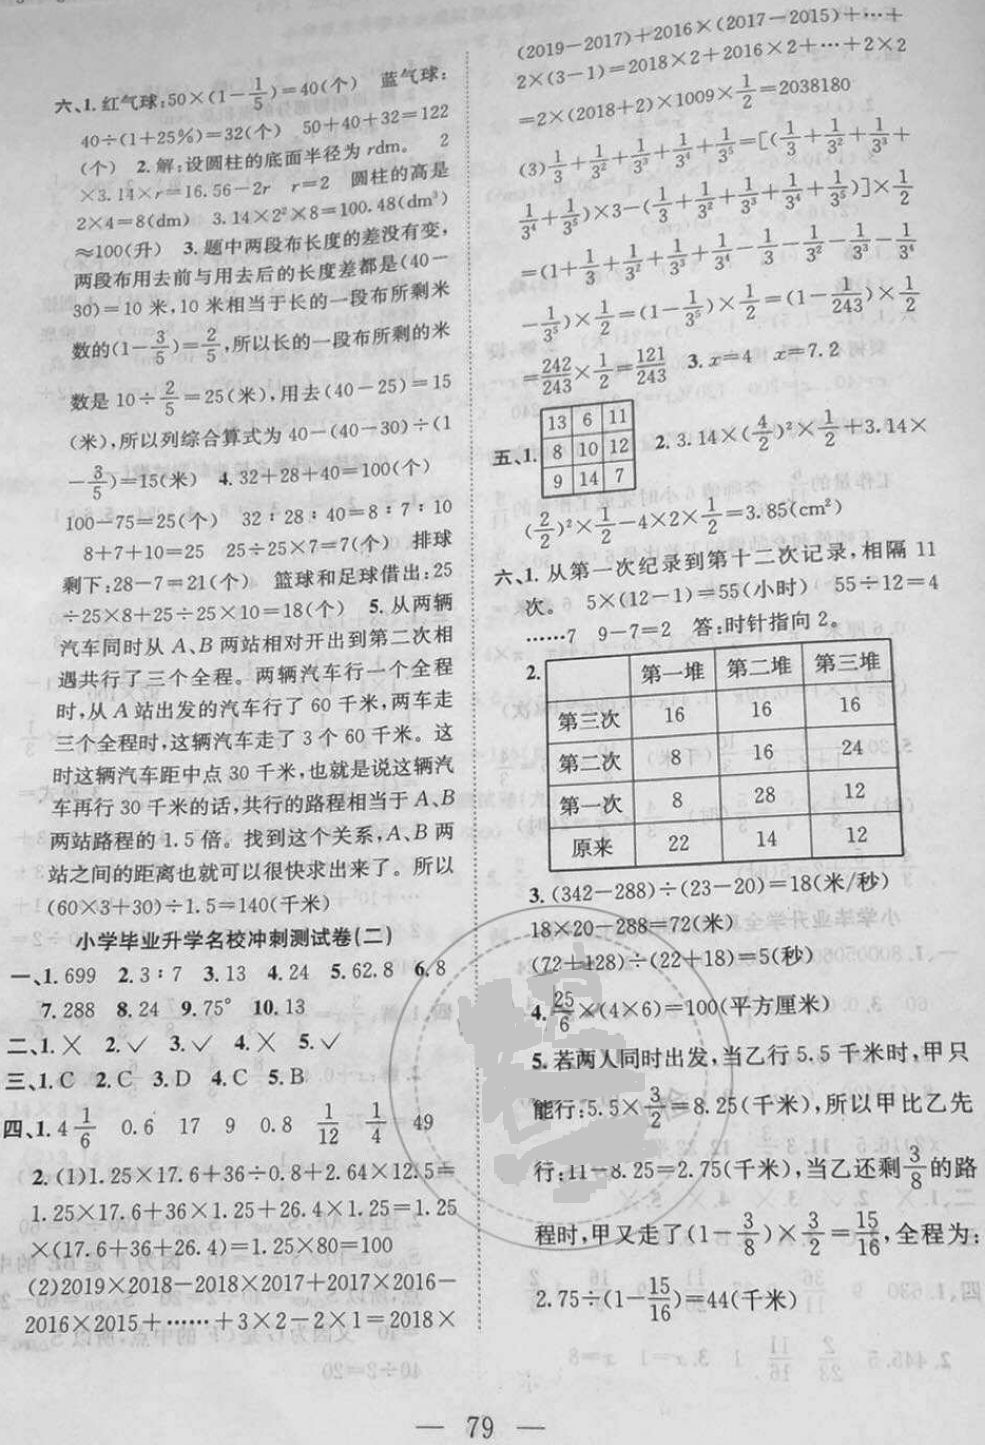 六、1. 红气球:50×(1-1/5)=40(个) 蓝气球:
40÷(1+25%)=32(个) 50+40+32=122
(个) 2. 解:设圆柱的底面半径为 rdm。 2
×3.14×r=16.56-2r r=2 圆柱的高是
2×4=8(dm) 3.14×2²×8=100.48(dm³)
≈100(升) 3. 题中两段布长度的差没有变,
两段布用去前与用去后的长度差都是(40-
30)=10 米,10 米相当于长的一段布所剩米
数的(1-3/5)=2/5,所以长的一段布所剩的米
数是 10÷2/5=25(米),用去(40-25)=15
(米),所以列综合算式为 40-(40-30)÷(1
-3/5)=15(米) 4. 32+28+40=100(个)
100-75=25(个) 32∶28∶40=8∶7∶10
8+7+10=25 25÷25×7=7(个) 排球
剩下:28-7=21(个) 篮球和足球借出:25
÷25×8+25÷25×10=18(个) 5. 从两辆
汽车同时从 A、B 两站相对开出到第二次相
遇共行了三个全程。两辆汽车行一个全程
时,从 A 站出发的汽车行了 60 千米,两车走
三个全程时,这辆汽车走了 3 个 60 千米。这
时这辆汽车距中点 30 千米,也就是说这辆汽
车再行 30 千米的话,共行的路程相当于 A、B
两站路程的 1.5 倍。找到这个关系,A、B 两
站之间的距离也就可以很快求出来了。所以
(60×3+30)÷1.5=140(千米)
小学毕业升学名校冲刺测试卷(二)
一、1. 699 2. 3∶7 3. 13 4. 24 5. 62.8 6. 8
7. 288 8. 24 9. 75° 10. 13
二、1. × 2. ✓ 3. ✓ 4. × 5. ✓
三、1. C 2. C 3. D 4. C 5. B
四、1. 4 1/6 0.6 17 9 0.8 1/12 1/4 49
2. (1)1.25×17.6+36÷0.8+2.64×12.5=
1.25×17.6+36×1.25+26.4×1.25=1.25
×(17.6+36+26.4)=1.25×80=100
(2)2019×2018-2018×2017+2017×2016-
2016×2015+……+3×2-2×1=2018×
(2019-2017)+2016×(2017-2015)+…+
2×(3-1)=2018×2+2016×2+…+2×2
=2×(2018+2)×1009×1/2=2038180
(3)1/3+1/3²+1/3³+1/3⁴+1/3⁵=[(1/3+1/3²+1/3³+
1/3⁴+1/3⁵)×3-(1/3+1/3²+1/3³+1/3⁴+1/3⁵)]×1/2
=(1+1/3+1/3²+1/3³+1/3⁴-1/3-1/3²-1/3³-1/3⁴
-1/3⁵)×1/2=(1-1/3⁵)×1/2=(1-1/243)×1/2
=242/243×1/2=121/243 3. x=4 x=7.2
五、1.
13 6 11
8 10 12
9 14 7
2. 3.14×(4/2)²×1/2+3.14×
(2/2)²×1/2-4×2×1/2=3.85(cm²)
六、1. 从第一次纪录到第十二次记录,相隔 11
次。 5×(12-1)=55(小时) 55÷12=4
……7 9-7=2 答:时针指向 2。
2.
第一堆 第二堆 第三堆
第三次 16 16 16
第二次 8 16 24
第一次 8 28 12
原来 22 14 12
3. (342-288)÷(23-20)=18(米/秒)
18×20-288=72(米)
(72+128)÷(22+18)=5(秒)
4. 25/6×(4×6)=100(平方厘米)
5. 若两人同时出发,当乙行 5.5 千米时,甲只
能行:5.5×3/2=8.25(千米),所以甲比乙先
行:11-8.25=2.75(千米),当乙还剩3/8的路
程时,甲又走了(1-3/8)×3/2=15/16,全程为:
2.75÷(1-15/16)=44(千米)
— 79 —